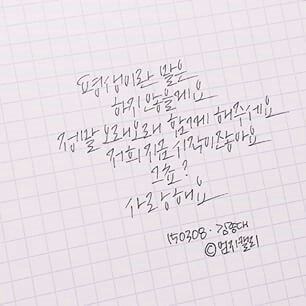 평생이란 말은
하지 않을게요
정말 오래오래 함께 해주세요
저희 지금 시작이잖아요
그죠?
사랑해요
150308. 김종대
©엄지캘리